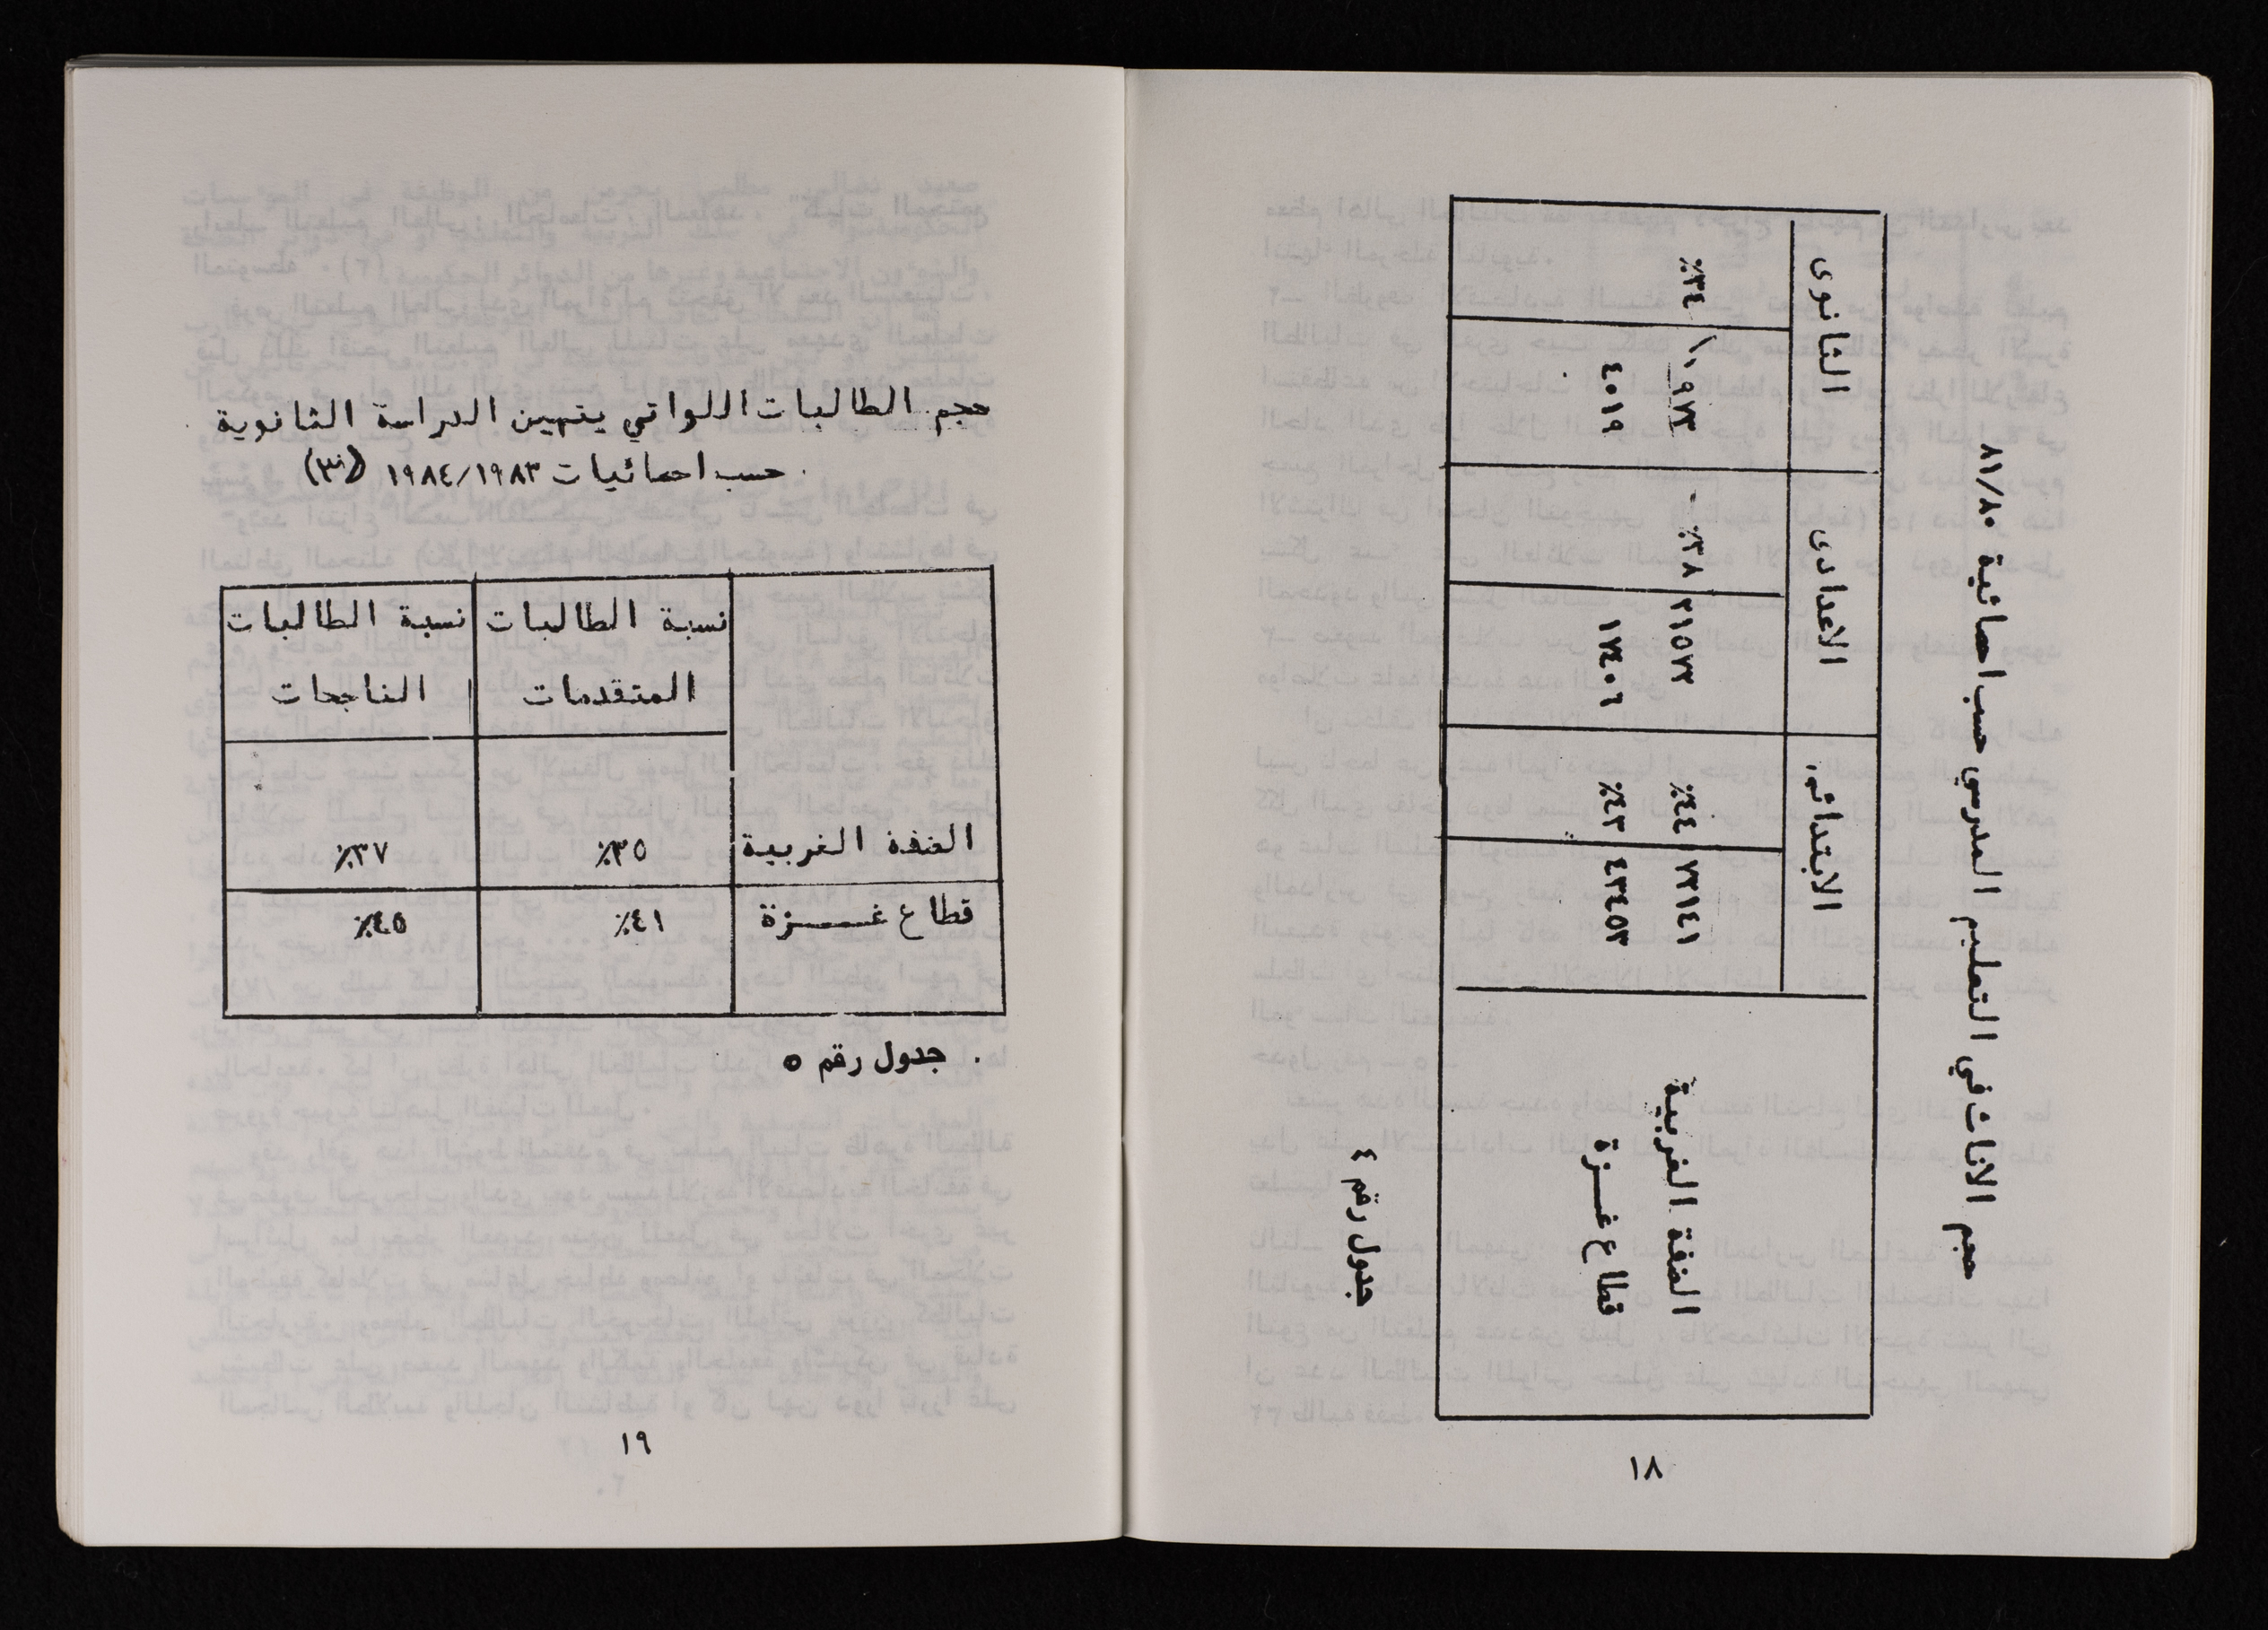 حجم الاناث في التعليم المدرسي حسب احصائية ٨١/٨٠
الابتدائي الاعدادى الثانوى
الضفة الغربية ٧٣١٤١ ٤٤٪ ٢١٥٧٣ ٣٨٪ ١٠٩٧٣ ٣٤٪
قطاع غـــزة ٤٣٤٥٣ ٤٣٪ ١٧٤٠٦ ٤٠١٩
جدول رقم ٤
١٨
حجم الطالبات اللواتي ينهين الدراسة الثانوية
حسب احصائيات ١٩٨٤/١٩٨٣
نسبة الطالبات نسبة الطالبات
المتقدمات الناجحات
الضفة الغربية ٣٥٪ ٣٧٪
قطاع غـــزة ٤١٪ ٤٥٪
جدول رقم ٥
١٩